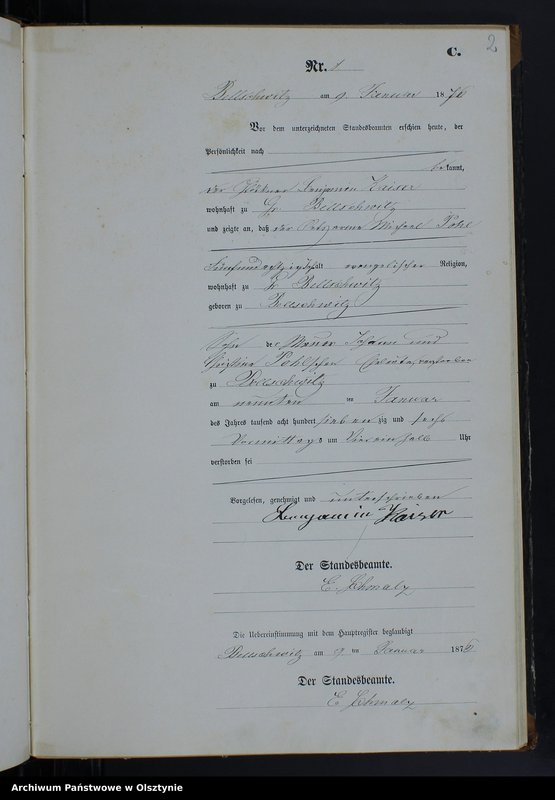 2
C.
Nr. 1
Bellschwitz am 9 Januar 1876
Vor dem unterzeichneten Standesbeamten erschien heute, der
Persönlichkeit nach
bekannt,
der Benjamin Kaiser
wohnhaft zu Gr. Bellschwitz
und zeigte an, daß der Ortsarme Michael Pohl
alt evangelischer Religion,
wohnhaft zu Gr. Bellschwitz
geboren zu Bellschwitz
Sohn der Johann und
Christine Pohlschen Eheleute, verstorben
zu Bellschwitz
am neunten ten Januar
des Jahres tausend acht hundert siebenzig und sechs
Vormittags um Uhr
verstorben sei
Vorgelesen, genehmigt und unterschrieben
Benjamin Kaiser
Der Standesbeamte.
E. Schmalz
Die Uebereinstimmung mit dem Hauptregister beglaubigt
Bellschwitz am 9 ten Januar 1876
Der Standesbeamte.
E. Schmalz
Archiwum Państwowe w Olsztynie